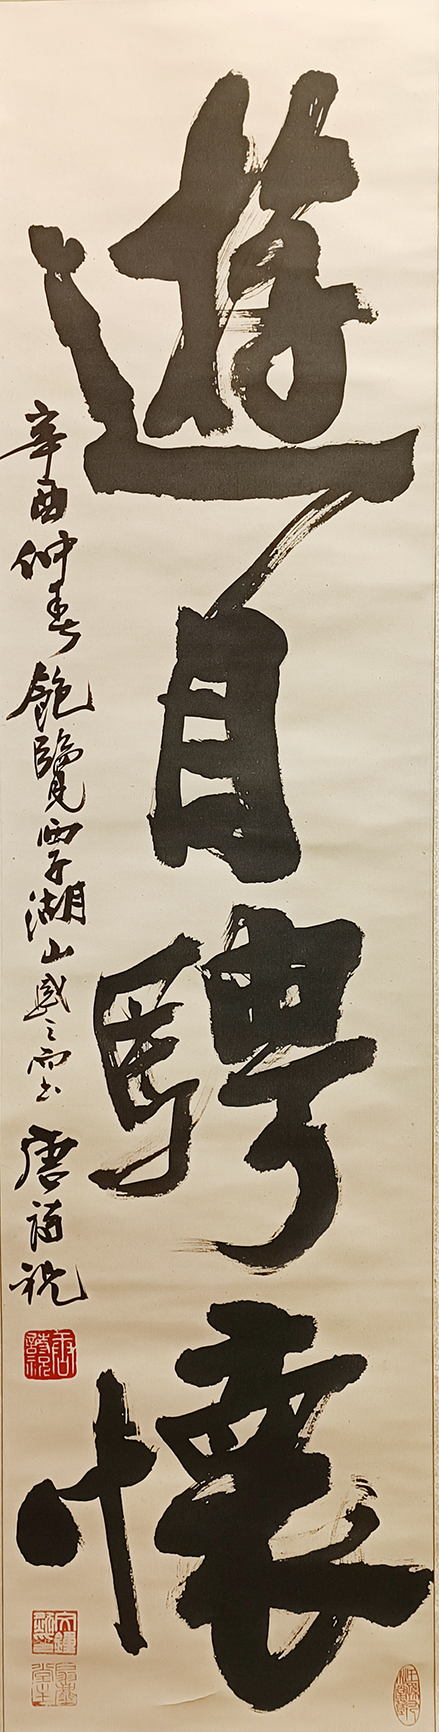 遊目騁懷
辛酉仲春飽覽西子湖山感之而書
唐詩祝